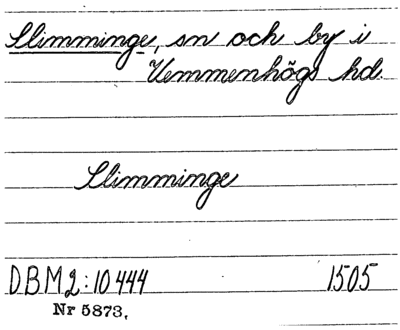 Slimminge, sn och by i
Vemmenhögs hd.
Slimminge
DBM2:10444 1505
Nr 5873,